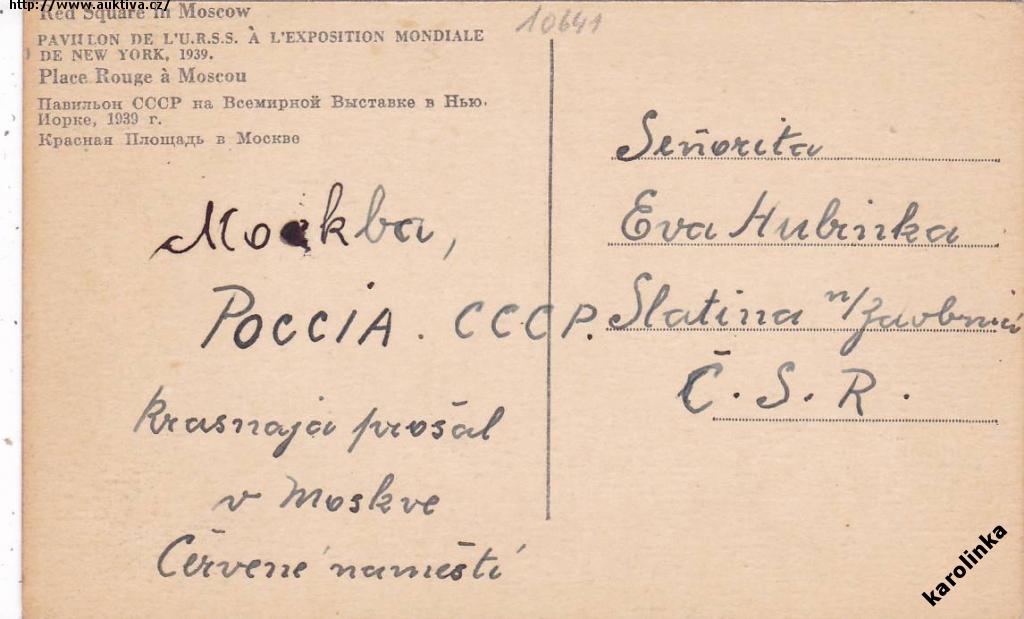 http://www.auktiva.cz/
Red Square in Moscow
PAVILLON DE L'U.R.S.S. À L'EXPOSITION MONDIALE
DE NEW YORK, 1939.
Place Rouge à Moscou
Павильон СССР на Всемирной Выставке в Нью-
Иорке, 1939 г.
Красная Площадь в Москве
10641
Москва,
РОССІЯ. СССР.
Krasnaja prošal
v Moskve
Červené naměstí
Seňorita
Eva Hubinka
Slatina n/
Č. S. R.
karolinka